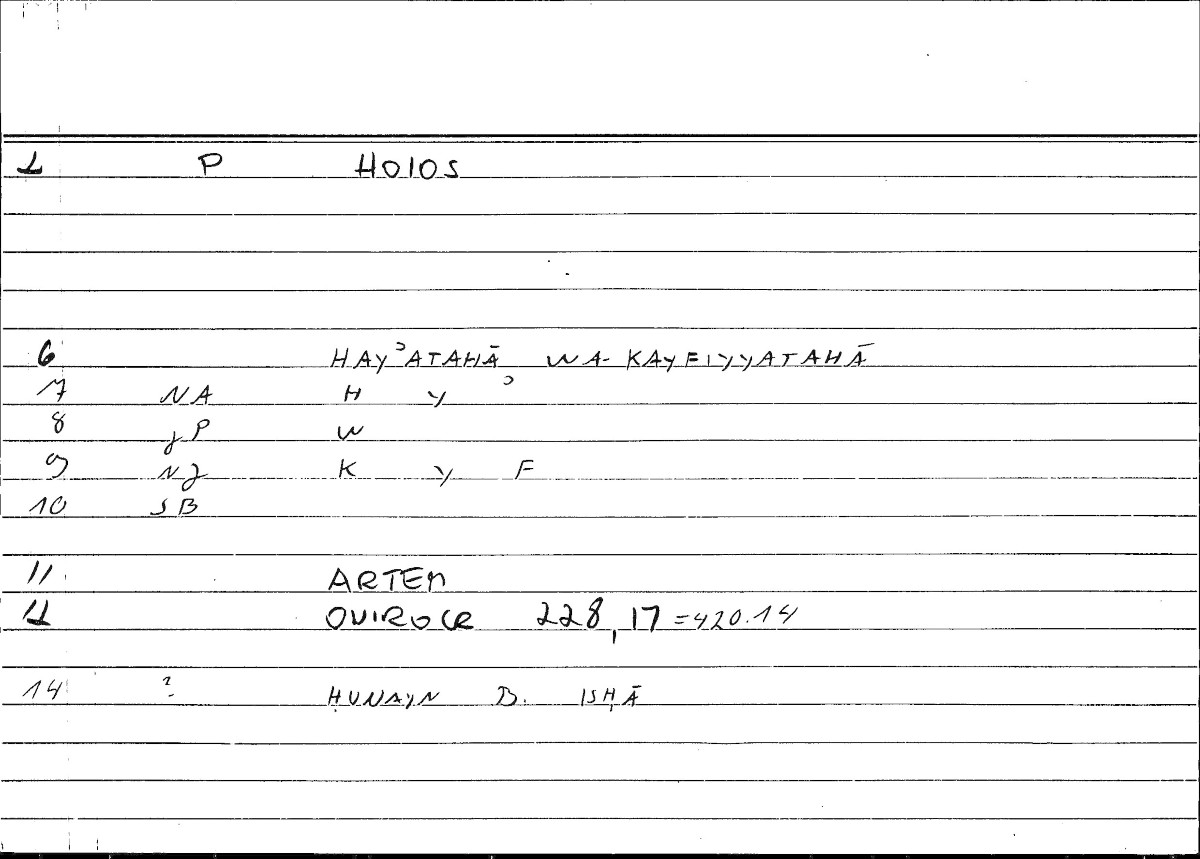 1 P HOLOS
6 HAYʾATAHĀ, WA-KAYFIYYATAHĀ
7 NA H Y ʾ
8 JP W
9 NJ K Y F
10 SB
11 ARTEM
12 OVIROCR 228,17 =420.14
14 ? ḤUNAYN B. ISḤĀ